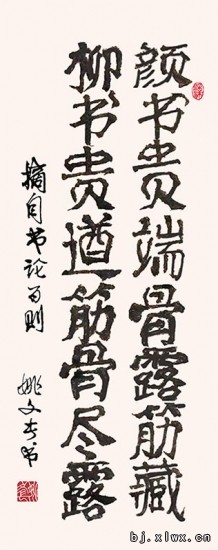 颜书贵端骨露筋藏
柳书贵遒筋骨尽露
摘自书论百则
姚文奎书
bj.xlwx.cn